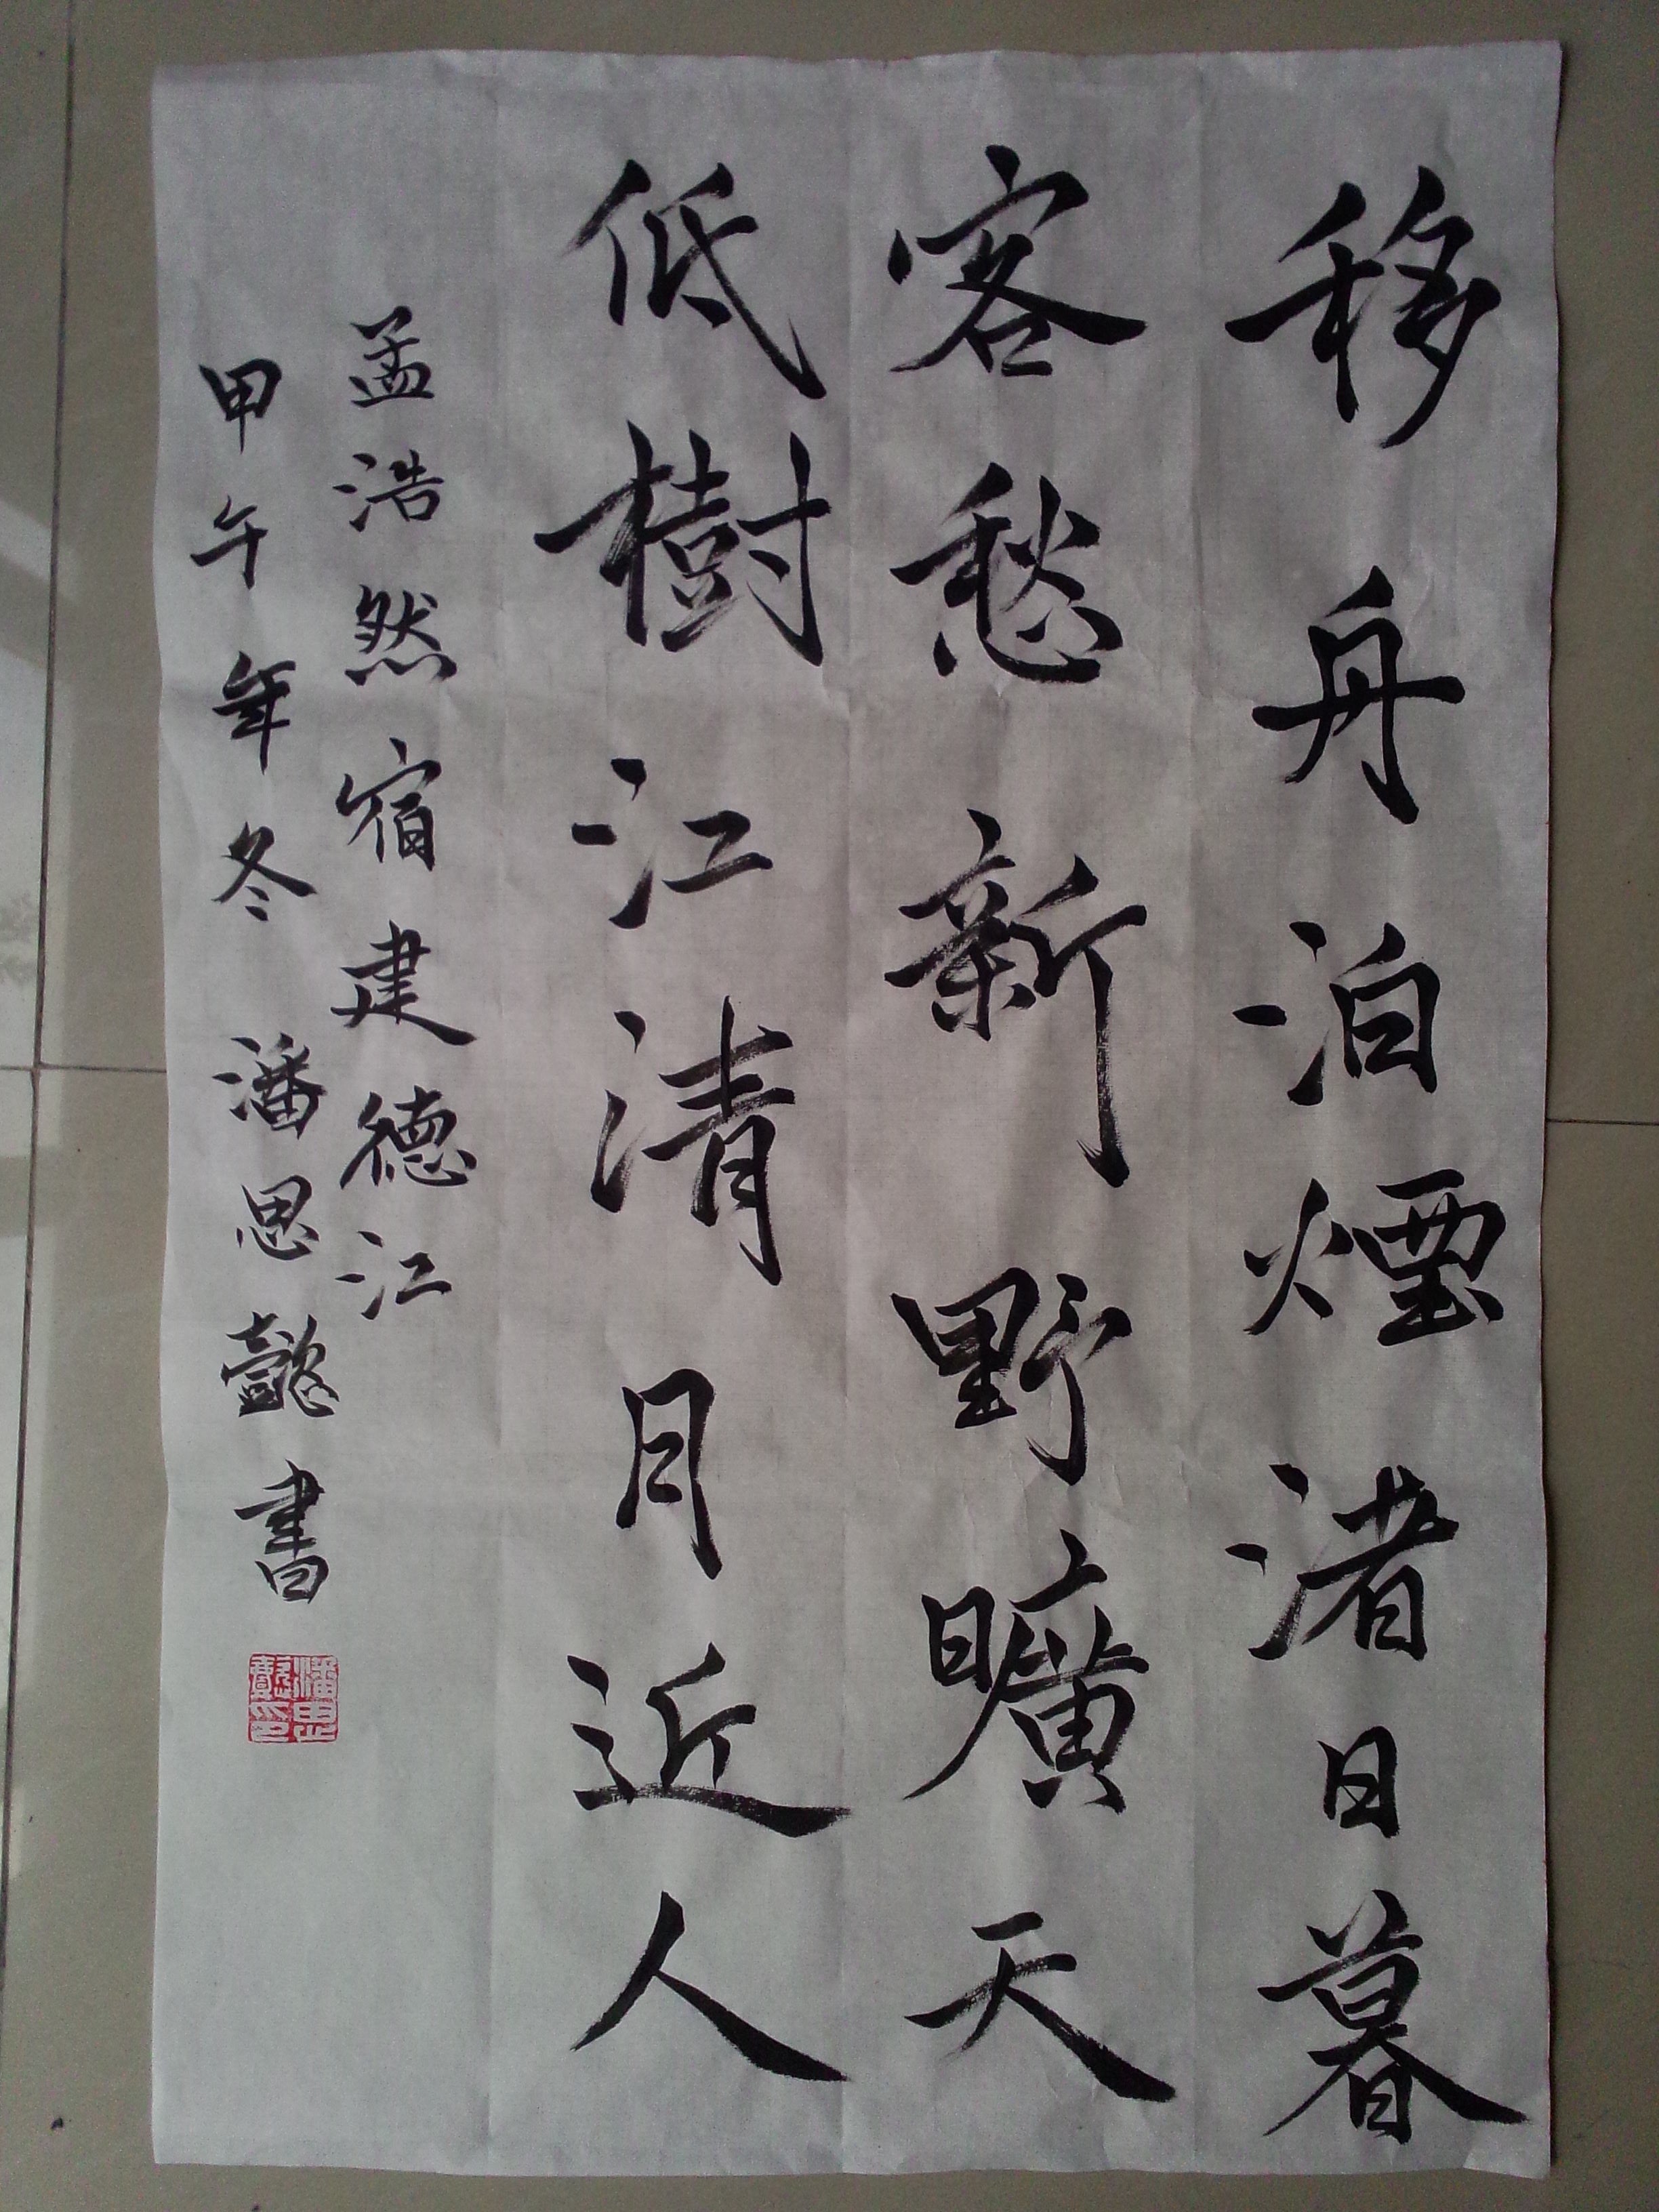 移舟泊煙渚日暮
客愁新野曠天
低樹江清月近人
孟浩然宿建德江
甲午年冬 潘思懿書